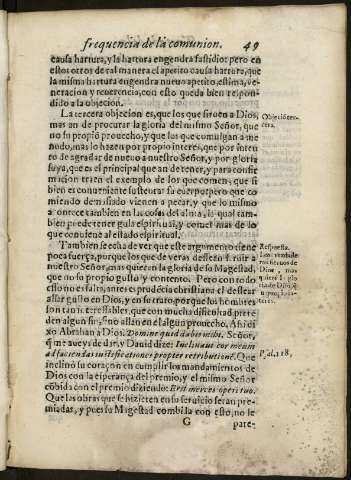 frequencia de la comunion. 49
causa hartura, y la hartura engendra fastidio: pero en
estos otros de tal manera el apetito causa hartura, que
la misma hartura engendra nuevo apetito, estima, ve-
neracion y reuerencia, con esto queda bien respon-
dido a la objecion.
La tercera objecion es, que los que siruen a Dios,
mas an de procurar la gloria del mismo Señor, que
no su propio prouecho, y que los que comulgan a me
nudo, mas lo hazen por propio interes, que por inten
to de agradar de nueuo a nuestro Señor, y por gloria
suya, que es el principal que an de tener, y para confir
macion traen el exemplo de los que comen, que si
bien es conueniente sustentar su cuerpo, pero que co
miendo demasiado vienen a pecar, y que lo mismo
acontece tambien en las cosas del alma, la qual tam-
bien puede tener gula espiritual, y comer mas de lo
que conuiene al estado espiritual.
Tambien se echa de ver que este argumento tiene
poca fuerça, porque los que de veras dessean seruir a
nuestro Señor, mas quieren la gloria de su Magestad,
que no su propio gusto y contento. Pero con todo
esto no es falta, antes es prudēcia christiana el dessear
allar gusto en Dios, y en su trato, porque los hōbres
son tan interessables, que con mucha dificultad preten
den algun fin, sino allan en el algun prouecho. Ahi di
xo Abrahan a Dios. Domine quid dabis mihi. Señor,
q̃ me aueys de dar, y Dauid dize: Inclinaui cor meum
ad faciendas iustificationes propter retributionē. Que
inclinó su coraçon en cumplir los mandamientos de
Dios con la esperança del premio, y el mismo Señor
cōbida con el premio diziendo: Erit merces operi tuo.
Que las obras que se hizieren en su seruicio seran pre-
miadas, y pues su Magestad combida con esto, no le
G pare-
Objeciō ter-
cera.
Respuesta.
Psal. 118.